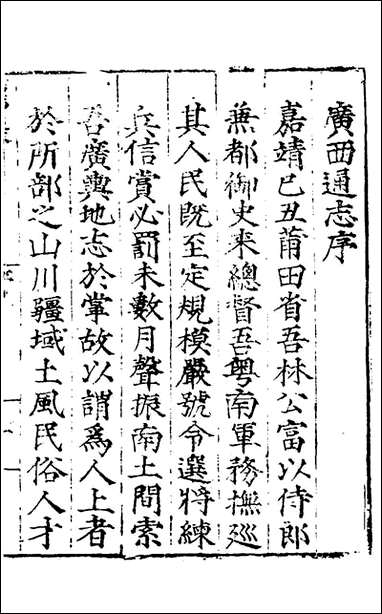 廣西通志序
嘉靖己丑莆田省吾林公富以侍郎
兼都御史来總督吾粤南軍務撫廵
其人民既至定規模嚴號令選將練
兵信賞必罰未數月聲振南土間索
吾廣輿地志於掌故以謂爲人上者
於所部之山川疆域土風民俗人才